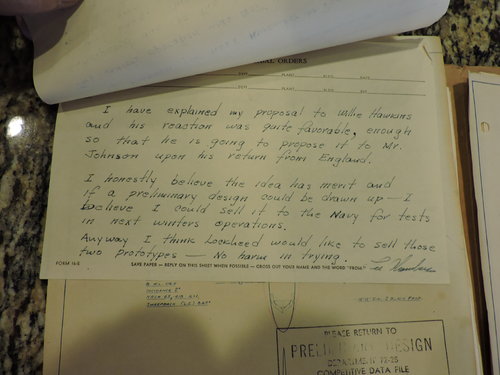 ORDERS
DEPT. PLANT BLDG. DATE
DEPT. PLANT BLDG.
I have explained my proposal to Willie Hawkins
and his reaction was quite favorable, enough
so that he is going to propose it to Mr.
Johnson upon his return from England.
I honestly believe the idea has merit and
if a preliminary design could be drawn up — I
believe I could sell it to the Navy for tests
in next winters operations.
Anyway I think Lockheed would like to sell those
two prototypes — No harm in trying.
FORM 16-E
SAVE PAPER — REPLY ON THIS SHEET WHEN POSSIBLE — CROSS OUT YOUR NAME AND THE WORD "FROM."
PLEASE RETURN TO
DESIGN
DEPARTMENT 72-25
COMPETITIVE DATA FILE